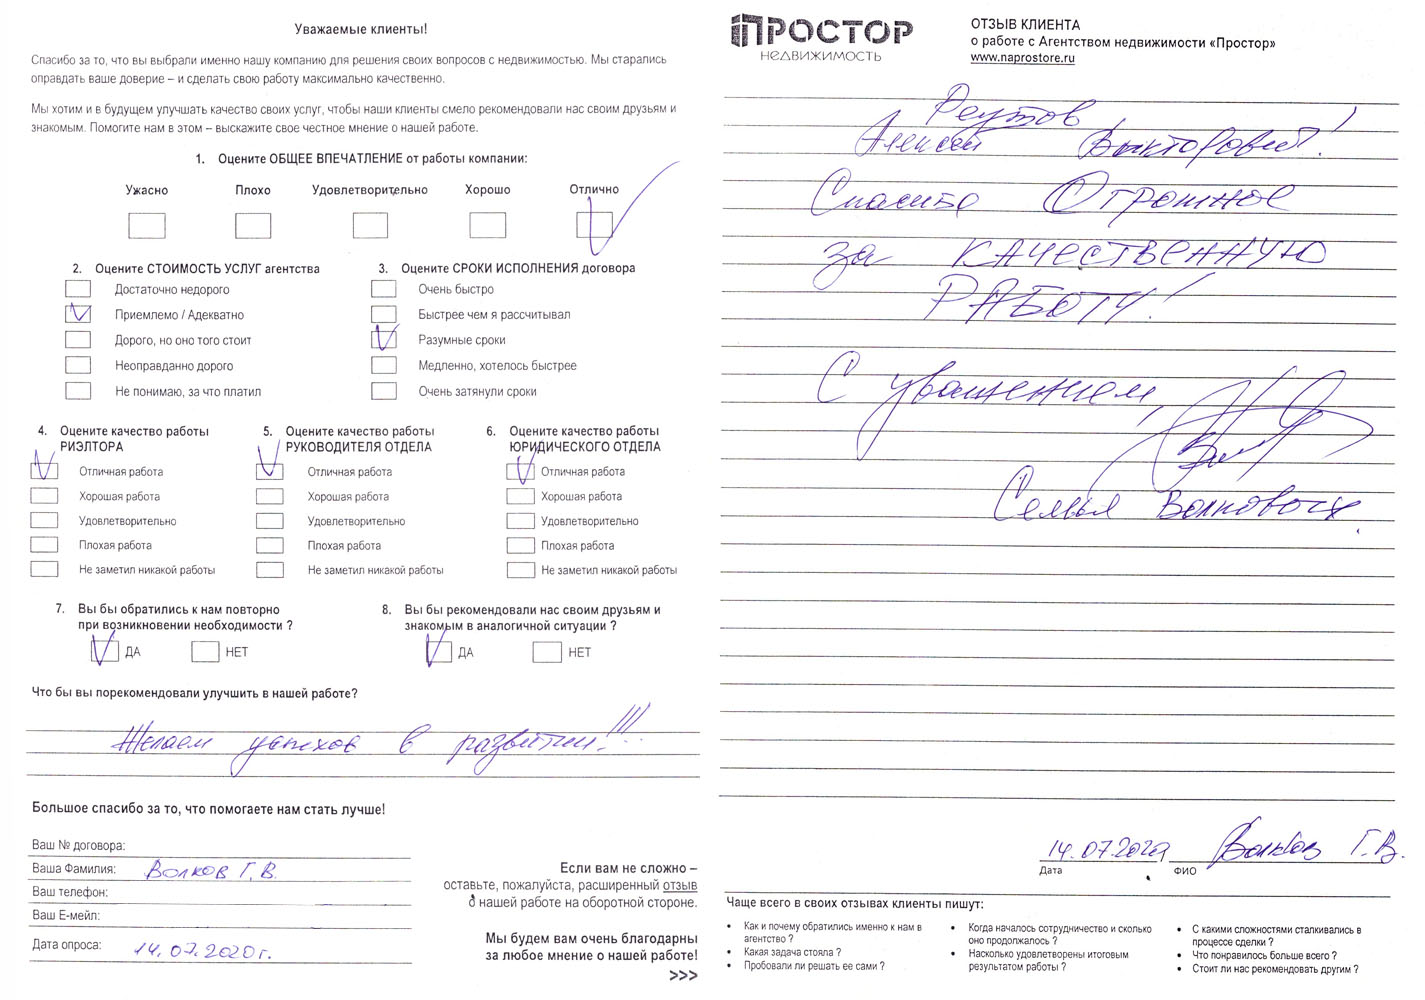 Уважаемые клиенты!
Спасибо за то, что вы выбрали именно нашу компанию для решения своих вопросов с недвижимостью. Мы старались
оправдать ваше доверие – и сделать свою работу максимально качественно.
Мы хотим и в будущем улучшать качество своих услуг, чтобы наши клиенты смело рекомендовали нас своим друзьям и
знакомым. Помогите нам в этом – выскажите свое честное мнение о нашей работе.
1. Оцените ОБЩЕЕ ВПЕЧАТЛЕНИЕ от работы компании:
Ужасно Плохо Удовлетворительно Хорошо Отлично
2. Оцените СТОИМОСТЬ УСЛУГ агентства
Достаточно недорого
Приемлемо / Адекватно
Дорого, но оно того стоит
Неоправданно дорого
Не понимаю, за что платил
3. Оцените СРОКИ ИСПОЛНЕНИЯ договора
Очень быстро
Быстрее чем я рассчитывал
Разумные сроки
Медленно, хотелось быстрее
Очень затянули сроки
4. Оцените качество работы
РИЭЛТОРА
Отличная работа
Хорошая работа
Удовлетворительно
Плохая работа
Не заметил никакой работы
5. Оцените качество работы
РУКОВОДИТЕЛЯ ОТДЕЛА
Отличная работа
Хорошая работа
Удовлетворительно
Плохая работа
Не заметил никакой работы
6. Оцените качество работы
ЮРИДИЧЕСКОГО ОТДЕЛА
Отличная работа
Хорошая работа
Удовлетворительно
Плохая работа
Не заметил никакой работы
7. Вы бы обратились к нам повторно
при возникновении необходимости ?
ДА НЕТ
8. Вы бы рекомендовали нас своим друзьям и
знакомым в аналогичной ситуации ?
ДА НЕТ
Что бы вы порекомендовали улучшить в нашей работе?
Желаем успехов в развитии!!!
Большое спасибо за то, что помогаете нам стать лучше!
Ваш № договора:
Ваша Фамилия: Волков Г.В.
Ваш телефон:
Ваш E-мейл:
Дата опроса: 14.07.2020г.
Если вам не сложно –
оставьте, пожалуйста, расширенный отзыв
о нашей работе на оборотной стороне.
Мы будем вам очень благодарны
за любое мнение о нашей работе!
>>>
ПРОСТОР
НЕДВИЖИМОСТЬ
ОТЗЫВ КЛИЕНТА
о работе с Агентством недвижимости «Простор»
www.naprostore.ru
Реутов
Алексей Викторович!
Спасибо Огромное
за КАЧЕСТВЕННУЮ
РАБОТУ!
С уважением
Семья Волковых.
14.07.2020 Волков Г.В.
Дата ФИО
Чаще всего в своих отзывах клиенты пишут:
• Как и почему обратились именно к нам в
агентство ?
• Какая задача стояла ?
• Пробовали ли решать ее сами ?
• Когда началось сотрудничество и сколько
оно продолжалось ?
• Насколько удовлетворены итоговым
результатом работы ?
• С какими сложностями сталкивались в
процессе сделки ?
• Что понравилось больше всего ?
• Стоит ли нас рекомендовать другим ?